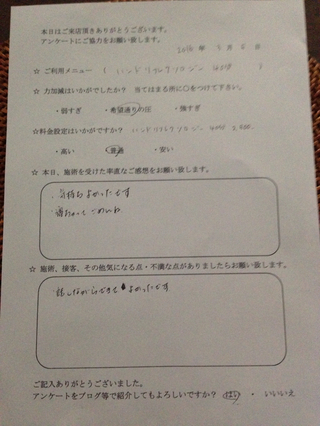 本日はご来店頂きありがとうございます。
アンケートにご協力をお願い致します。
年 月 日
☆ ご利用メニュー ( ハンドリフレクソロジー )
☆ 力加減はいかがでしたか? 当てはまる所に○をつけて下さい。
・弱すぎ ・希望通りの圧 ・強すぎ
☆料金設定はいかがですか? ハンドリフレクソロジー
・高い ・普通 ・安い
☆ 本日、施術を受けた率直なご感想をお願い致します。
・気持ちよかったです
☆ 施術、接客、その他気になる点・不満な点がありましたらお願い致します。
・話しながらできてよかったです
ご記入ありがとうございました。
アンケートをブログ等で紹介してもよろしいですか? はい ・ いいえ